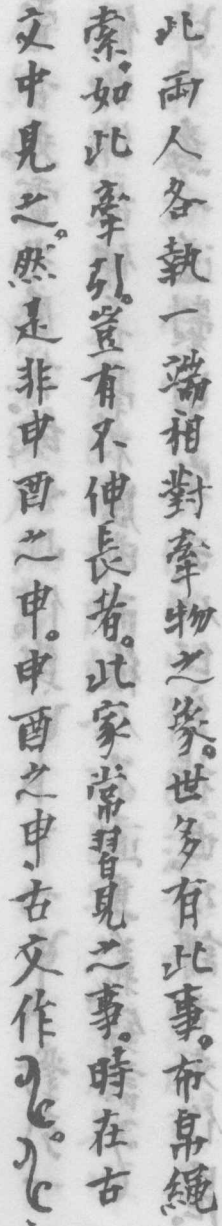 此兩人各執一端相對牽物之象。世多有此事。布帛繩
索。如此牽引。豈有不伸長者。此家常習見之事。時在古
文中見之。然是非申酉之申。申酉之申、古文作